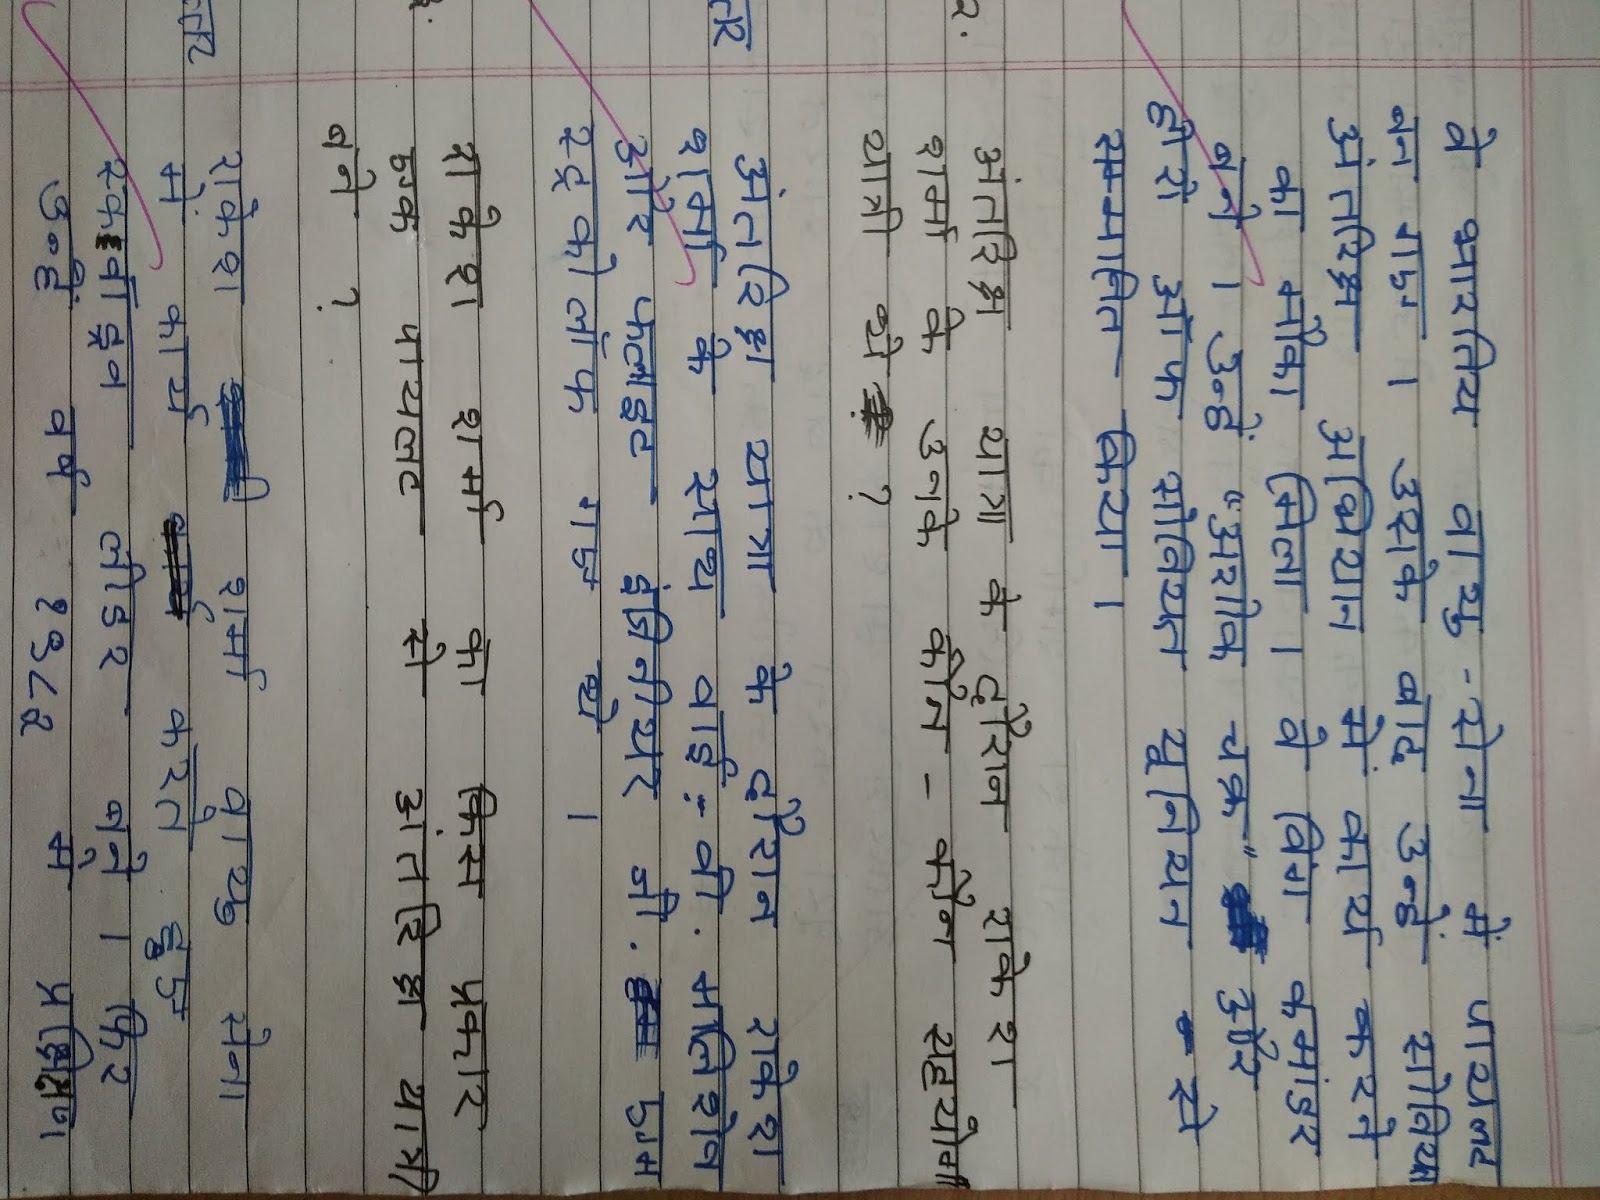 वे भारतिय वायु-सेना में पायलट
बन गए। उसके बाद उन्हें सोवियत
अंतरिक्ष अभियान में कार्य करने
का मौका मिला। वे विंग कमांडर
बने। उन्हें "अशोक चक्र" और
हीरो ऑफ सोवियत यूनियन से
सम्मानित किया।
२. अंतरिक्ष यात्रा के दौरान राकेश
शर्मा के उनके कौन-कौन सहयोगी
यात्री थे ?
त्तर अंतरिक्ष यात्रा के दौरान राकेश
शर्मा के साथ वाई. वी. मालिशेव
और फ्लाइट इंजिनीयर जी. एम
स्ट्रेकोलॉफ गए थे।
राकेश शर्मा का किस प्रकार
एक पायलट से अंतरिक्ष यात्री
बने ?
त्तर राकेश शर्मा वायु सेना
में कार्य करते हुए
स्क्वाड्रन लीडर बने। फिर
उन्हें वर्ष १९८२ में प्रशिक्षण